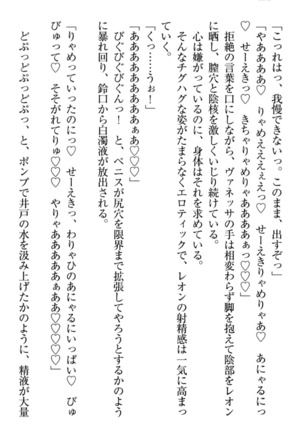 「こっれはっ、我慢できないっ。このまま、出すぞっ」
「やああああ♡　りゃめええええっ♡　せーえきりゃめりゃあ♡　あにゃるにっ
♡　せーえきっ♡　きちゃりゃめりゃああああぁっ♡♡♡」
拒絶の言葉を口にしながら、ヴァネッサの手は相変わらず脚を抱えて陰部をレオン
に晒し、膣穴と陰核を激しくいじり続けている。
心は嫌がっているのに、身体はそれを求めている。
そんなチグハグな姿がたまらなくエロティックで、レオンの射精感は一気に高まっ
ていく。
「くっ……うぉ！」
「ああああああああぁぁあ♡♡」
びぐびぐびぐんっ！　と、ペニスが尻穴を限界まで拡張してやろうとするかのよう
に暴れ回り、鈴口から白濁液が放出される。
「りゃめっていったのにっ♡　せーえきっ、わりゃひのあにゃるにいっぱい♡　びゅ
びゅって♡　そそがれてりゅ♡♡　やりゃあああああぁあ♡♡♡♡」
どぷっどぷっどぷっ、と、ポンプで井戸の水を汲み上げたかのように、精液が大量